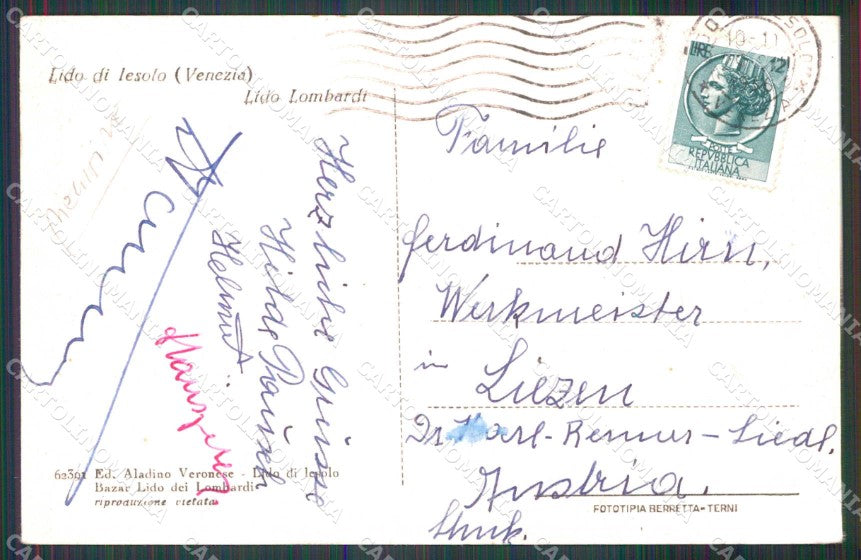 Lido di Iesolo (Venezia)
Lido Lombardi
Herzliche Grüsse
Hilde
Helmut
62301 Ed. Aladino Veronese - Lido di Iesolo
Bazar Lido dei Lombardi
riproduzione vietata
LIRE 12
POSTE
REPVBBLICA
ITALIANA
Familie
Ferdinand Hirn,
Werkmeister
in Liezen
Dr. Karl-Renner-Siedl.
Austria.
Stmk.
FOTOTIPIA BERRETTA - TERNI
CARTOLINOMANIA